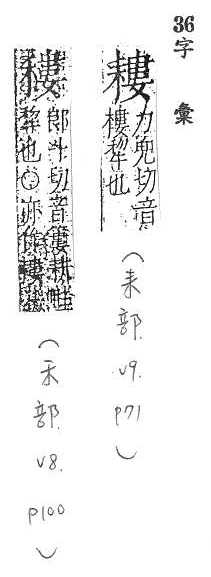 36 字彙
耬 力兜切音
樓犂也
(耒部. v9. p71)
䅹 郎斗切音 耕畦
犂也○亦作
(禾部. v8. p100)